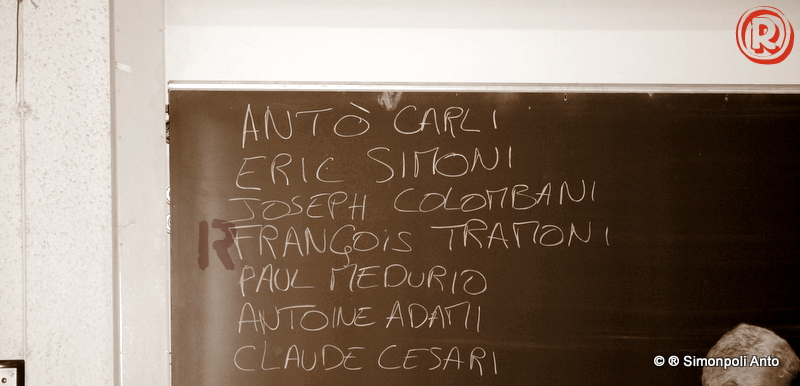 R
ANTÒ CARLI
ERIC SIMONI
JOSEPH COLOMBANI
R FRANÇOIS TRAMONI
PAUL MEDURIO
ANTOINE ADAMI
CLAUDE CESARI
© ® Simonpoli Anto